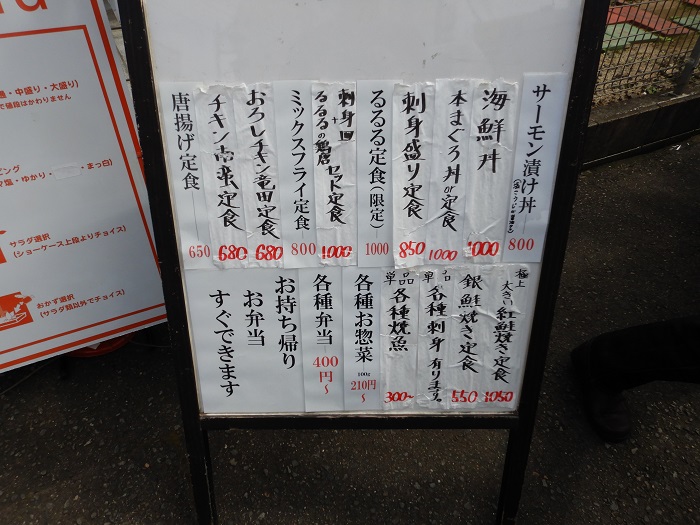 サーモン漬け丼
800
海鮮丼
1000
本まぐろ丼or定食
1000
刺身盛り定食
850
るるる定食(限定)
1000
刺身皿
+
るるるの鶏唐
セット定食
1000
ミックスフライ定食
800
おろしチキン竜田定食
680
チキン南蛮定食
680
唐揚げ定食
650
極上
大きい紅鮭焼き定食
1050
銀鮭焼き定食
550
単品
各種刺身有ります。
単品
各種焼魚
300~
各種お惣菜
100g
210円~
各種弁当
400円~
お持ち帰り
お弁当
すぐできます
・中盛り・大盛り)
で値段はかわりません
ピング
マ塩・ゆかり・
・まっ白)
サラダ選択
(ショーケース上段よりチョイス)
おかず選択
(サラダ類以外でチョイス)